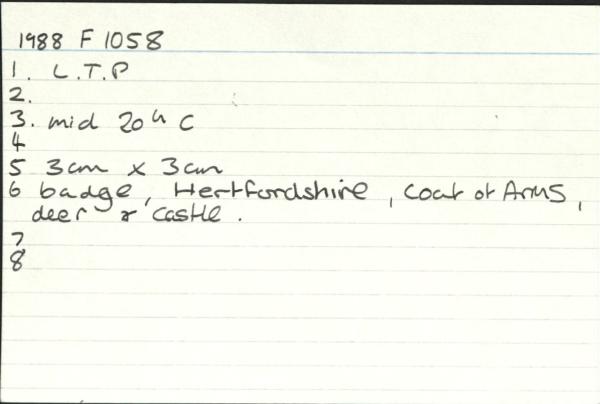 1988 F 1058
1. L.T.P
2.
3. mid 20th C
4
5 3cm x 3cm
6 badge, Hertfordshire, Coat of Arms,
deer & castle.
7
8